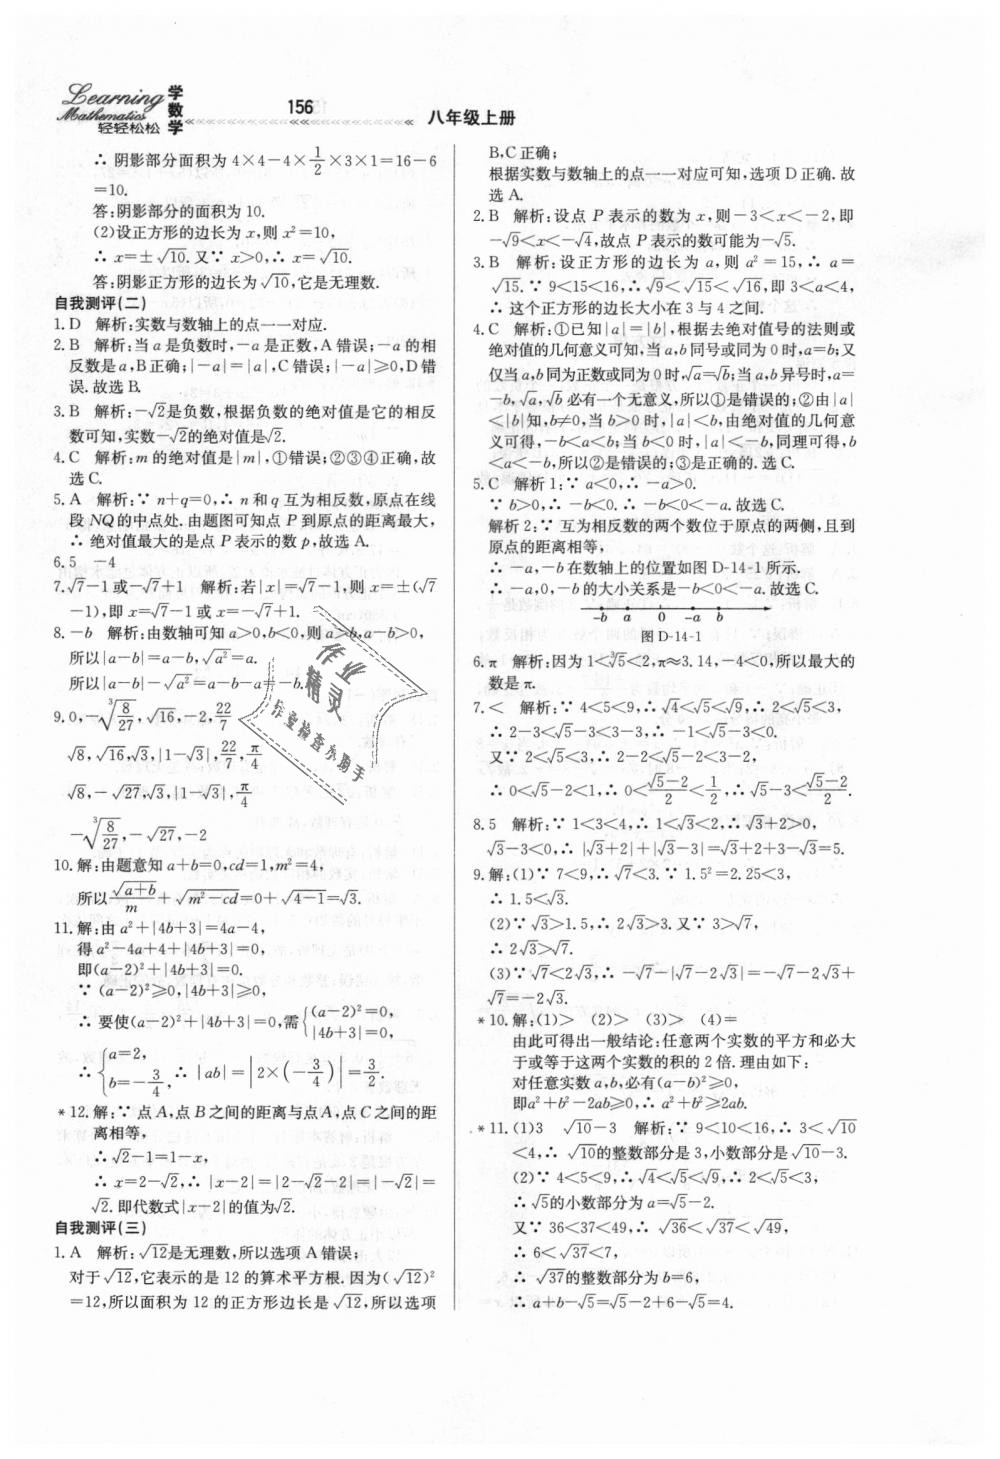 Learning
Mathematics
轻轻松松
学数学
156
八年级上册
∴ 阴影部分面积为 4×4-4×1/2×3×1=16-6
=10.
答:阴影部分的面积为 10.
(2)设正方形的边长为 x,则 x²=10,
∴ x=±√10. 又∵ x>0,∴ x=√10.
答:阴影正方形的边长为√10,它是无理数.
自我测评(二)
1. D 解析:实数与数轴上的点一一对应.
2. B 解析:当 a 是负数时,-a 是正数,A 错误;-a 的相
反数是 a,B 正确;|-a|=|a|,C 错误;|-a|≥0,D 错
误. 故选 B.
3. B 解析:-√2是负数,根据负数的绝对值是它的相反
数可知,实数-√2的绝对值是√2.
4. C 解析:m 的绝对值是|m|,①错误;②③④正确,故
选 C.
5. A 解析:∵ n+q=0,∴ n 和 q 互为相反数,原点在线
段 NQ 的中点处. 由题图可知点 P 到原点的距离最大,
∴ 绝对值最大的是点 P 表示的数 p,故选 A.
6. 5 -4
7. √7-1 或-√7+1 解析:若|x|=√7-1,则 x=±(√7
-1),即 x=√7-1 或 x=-√7+1.
8. -b 解析:由数轴可知 a>0,b<0,则 a>b,a-b>0,
所以|a-b|=a-b,√a²=a.
所以|a-b|-√a²=a-b-a=-b.
9. 0,-∛(8/27),√16,-2,22/7
√8,√16,√3,|1-√3|,22/7,π/4
√8,-√27,√3,|1-√3|,π/4
-∛(8/27),-√27,-2
10. 解:由题意知 a+b=0,cd=1,m²=4,
所以√(a+b)/m+√(m²-cd)=0+√(4-1)=√3.
11. 解:由 a²+|4b+3|=4a-4,
得 a²-4a+4+|4b+3|=0,
即(a-2)²+|4b+3|=0.
∵ (a-2)²≥0,|4b+3|≥0,
∴ 要使(a-2)²+|4b+3|=0,需{(a-2)²=0, |4b+3|=0,
∴ {a=2, b=-3/4, ∴ |ab|=|2×(-3/4)|=3/2.
*12. 解:∵ 点 A,点 B 之间的距离与点 A,点 C 之间的距
离相等,
∴ √2-1=1-x,
∴ x=2-√2,∴ |x-2|=|2-√2-2|=|-√2|=
√2. 即代数式|x-2|的值为√2.
自我测评(三)
1. A 解析:√12是无理数,所以选项 A 错误;
对于√12,它表示的是 12 的算术平方根. 因为(√12)²
=12,所以面积为 12 的正方形边长是√12,所以选项
B,C 正确;
根据实数与数轴上的点一一对应可知,选项 D 正确. 故
选 A.
2. B 解析:设点 P 表示的数为 x,则-3<x<-2,即
-√9<x<-√4,故点 P 表示的数可能为-√5.
3. B 解析:设正方形的边长为 a,则 a²=15,∴ a=
√15. ∵ 9<15<16,∴√9<√15<√16,即 3<a<4,
∴ 这个正方形的边长大小在 3 与 4 之间.
4. C 解析:①已知|a|=|b|,根据去绝对值号的法则或
绝对值的几何意义可知,当 a,b 同号或同为 0 时,a=b;又
仅当 a,b 同为正数或同为 0 时,√a=√b;当 a,b 异号时,a=
-b,√a,√b 必有一个无意义,所以①是错误的;②由|a|
<|b|知,b≠0,当 b>0 时,|a|<b,由绝对值的几何意
义可得,-b<a<b;当 b<0 时,|a|<-b,同理可得,b
<a<-b,所以②是错误的;③是正确的. 选 C.
5. C 解析 1:∵ a<0,∴ -a>0.
∵ b>0,∴ -b<0. ∴ -b<0<-a. 故选 C.
解析 2:∵ 互为相反数的两个数位于原点的两侧,且到
原点的距离相等,
∴ -a,-b 在数轴上的位置如图 D-14-1 所示.
∴ -a,0,-b 的大小关系是-b<0<-a. 故选 C.
-b a 0 -a b
图 D-14-1
6. π 解析:因为 1<∛5<2,π≈3.14,-4<0,所以最大的
数是 π.
7. < 解析:∵ 4<5<9,∴√4<√5<√9,∴ 2<√5<3,
∴ 2-3<√5-3<3-3,∴ -1<√5-3<0.
又∵ 2<√5<3,∴ 2-2<√5-2<3-2,
∴ 0<√5-2<1,∴ 0<(√5-2)/2<1/2,∴√5-3<(√5-2)/2.
8. 5 解析:∵ 1<3<4,∴ 1<√3<2,∴√3+2>0,
√3-3<0,∴ |√3+2|+|√3-3|=√3+2+3-√3=5.
9. 解:(1)∵ 7<9,∴√7<3. ∵ 1.5²=2.25<3,
∴ 1.5<√3.
(2)∵ √3>1.5,∴ 2√3>3. 又∵ 3>√7,
∴ 2√3>√7.
(3)∵√7<2√3,∴ -√7-|√7-2√3|=-√7-2√3+
√7=-2√3.
*10. 解:(1)> (2)> (3)> (4)=
由此可得出一般结论:任意两个实数的平方和必大
于或等于这两个实数的积的 2 倍. 理由如下:
对任意实数 a,b,必有(a-b)²≥0,
即 a²+b²-2ab≥0,∴ a²+b²≥2ab.
*11. (1)3 √10-3 解析:∵ 9<10<16,∴ 3<√10
<4,∴ √10的整数部分是 3,小数部分是√10-3.
(2)∵ 4<5<9,∴√4<√5<√9,∴ 2<√5<3,
∴ √5的小数部分为 a=√5-2.
又∵ 36<37<49,∴ √36<√37<√49,
∴ 6<√37<7,
∴ √37的整数部分为 b=6,
∴ a+b-√5=√5-2+6-√5=4.
作业
精灵
作业检查小助手